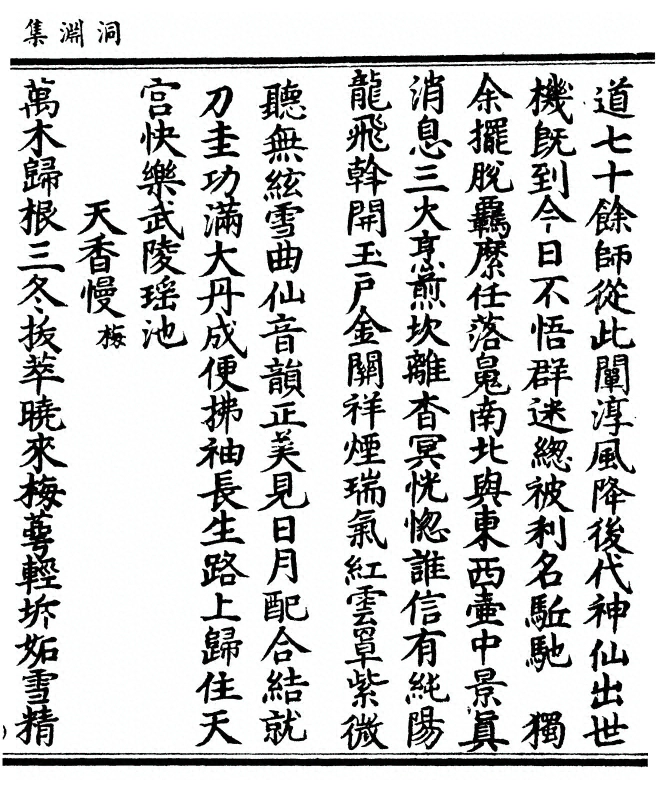 洞淵集
道七十餘師從此闡淳風降後代神仙出世
機既到今日不悟群迷緫被利名駈馳　獨
余擺脫羈縻任落䰟南北與東西壷中景真
消息三火烹煎坎離杳冥恍惚誰信有純陽
龍飛斡開玉戶金關祥煙瑞氣紅雲罩紫微
聽無絃雪曲仙音韻正美見日月配合結就
刀圭功滿大丹成便拂袖長生路上歸住天
宮快樂武陵瑶池
天香慢 梅
萬木歸根三冬拔萃曉來梅萼輕坼妬雪精